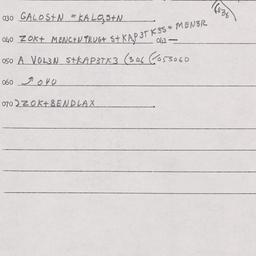 030 GALOS+N = KALO,S+N
040 ZOK+ MENC+NTRUG+ S+KAP3TK3S = MEN3R
050 A VOL3N S+KAP3TK3 (306 (053060
060 ↗ 040
070) ZOK+BENDLAX